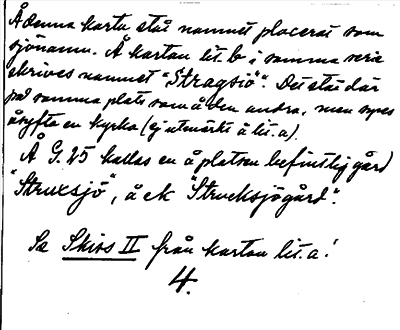 Å denna karta står namnet placerat som
sjönamn. Å kartan lit. b i samma serie
skrives namnet "Stragsiö". Det står där
på samma plats som å den andra, men synes
åsyfta en kyrka (ej utmärkt å lit. a).
Å G. 25 kallas en å platsen befintlig gård
"Struxsjö", å ek "Strucksjögård".
Se Skiss II från kartan lit. a!
4.